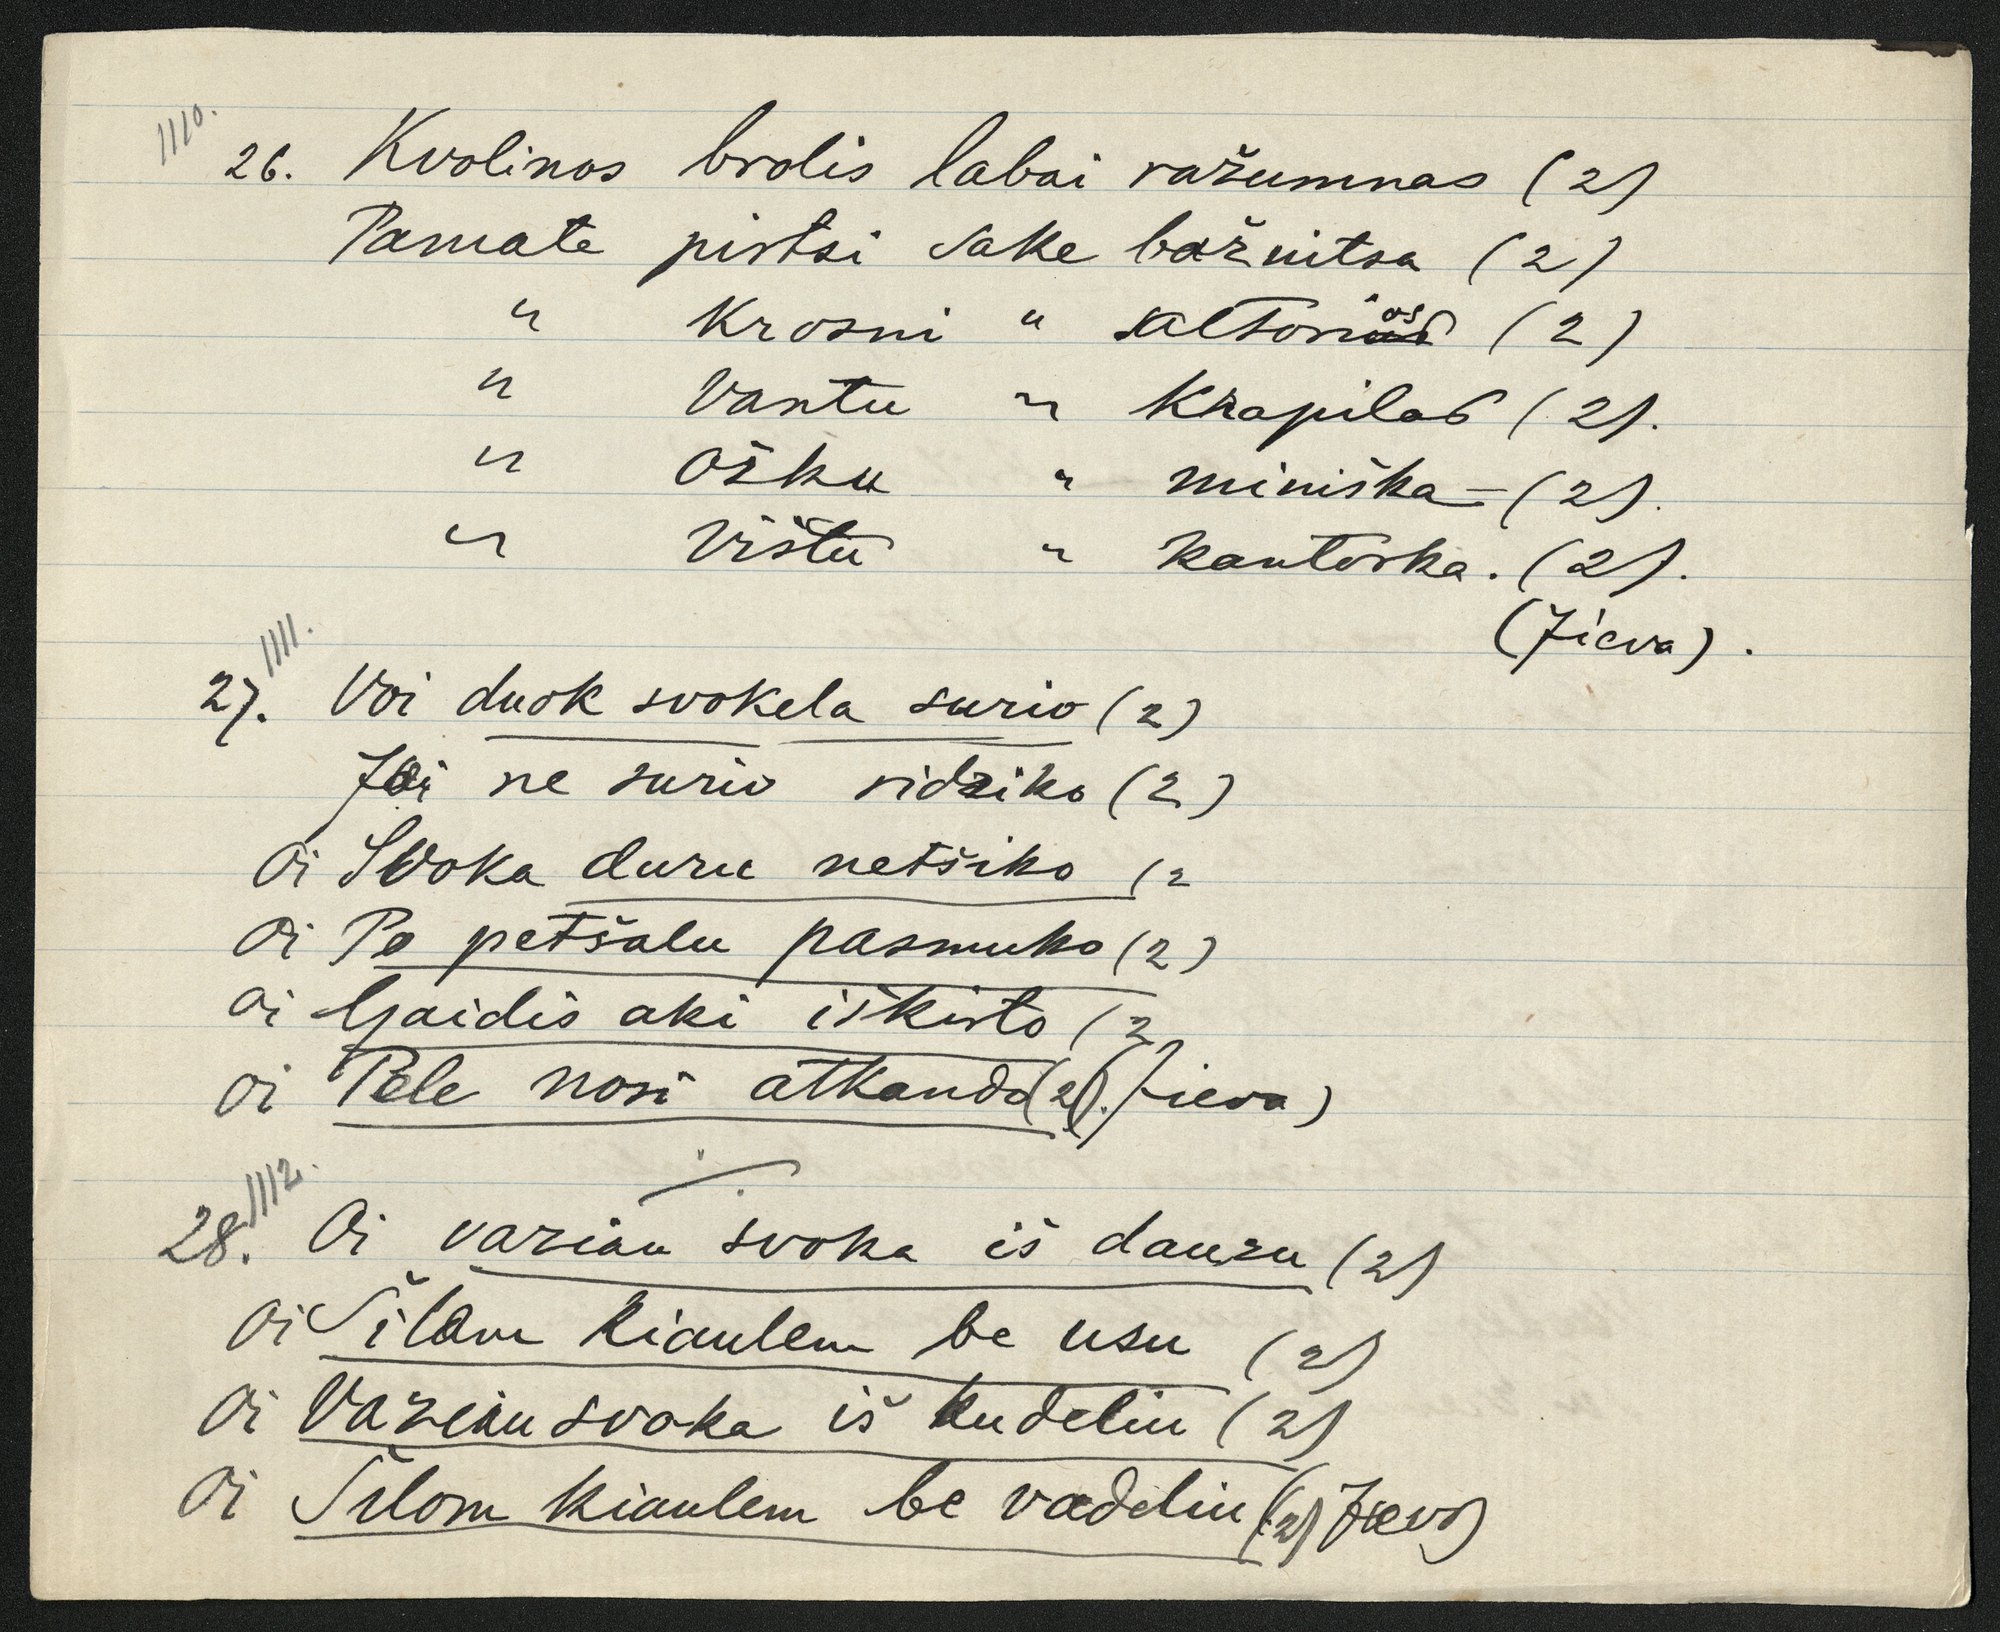 1110.
26. Kvolinos brolis labai ražumnas (2)
Pamate pirtsi sake bažnitsa (2)
" Krosni " altorios (2)
" Vantu " Krapilas (2).
" Ošku " miniška - (2).
" Vištu " kantorka. (2).
(Jieva).
1111.
27. Voi duok svokela surio (2)
Jei ne surio ridziko (2)
Oi Svoka duru netšiko (2
Oi Po petšalu pasmuko (2)
Oi Gaidis aki iškirto (2
Oi Pele nosi atkando (2). (Jieva)
1112.
28. Oi važiau svoka iš dauzu (2)
Oi Šilom kiaulem be usu (2)
Oi Važiau svoka iš kudeliu (2)
Oi Šilom kiaulem be vadeliu (2) (Jieva)